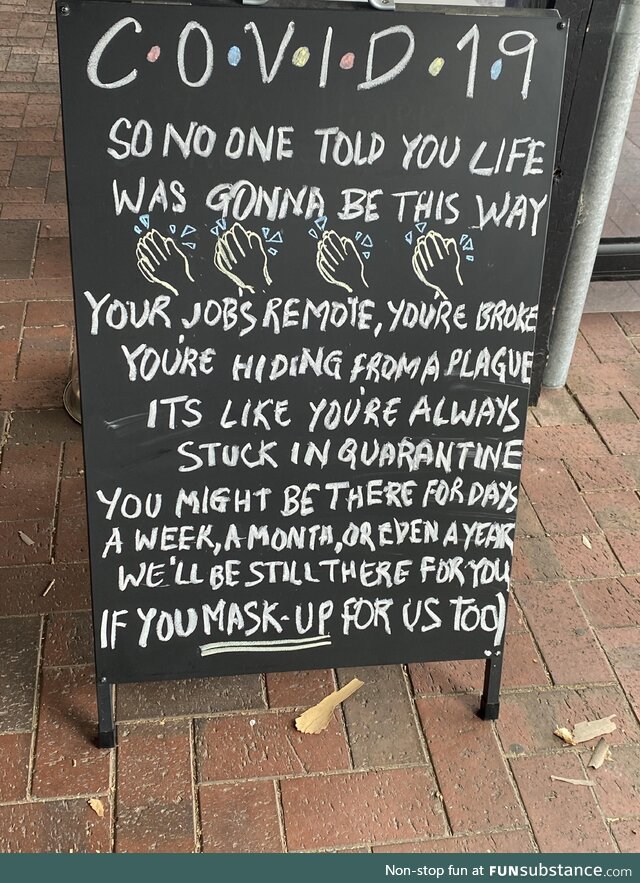 C•O•V•I•D•19
SO NO ONE TOLD YOU LIFE
WAS GONNA BE THIS WAY
YOUR JOB'S REMOTE, YOU'RE BROKE
YOU'RE HIDING FROM A PLAGUE
ITS LIKE YOU'RE ALWAYS
STUCK IN QUARANTINE
YOU MIGHT BE THERE FOR DAYS
A WEEK, A MONTH, OR EVEN A YEAR
WE'LL BE STILL THERE FOR YOU
IF YOU MASK-UP FOR US TOO)
Non-stop fun at FUNsubstance.com